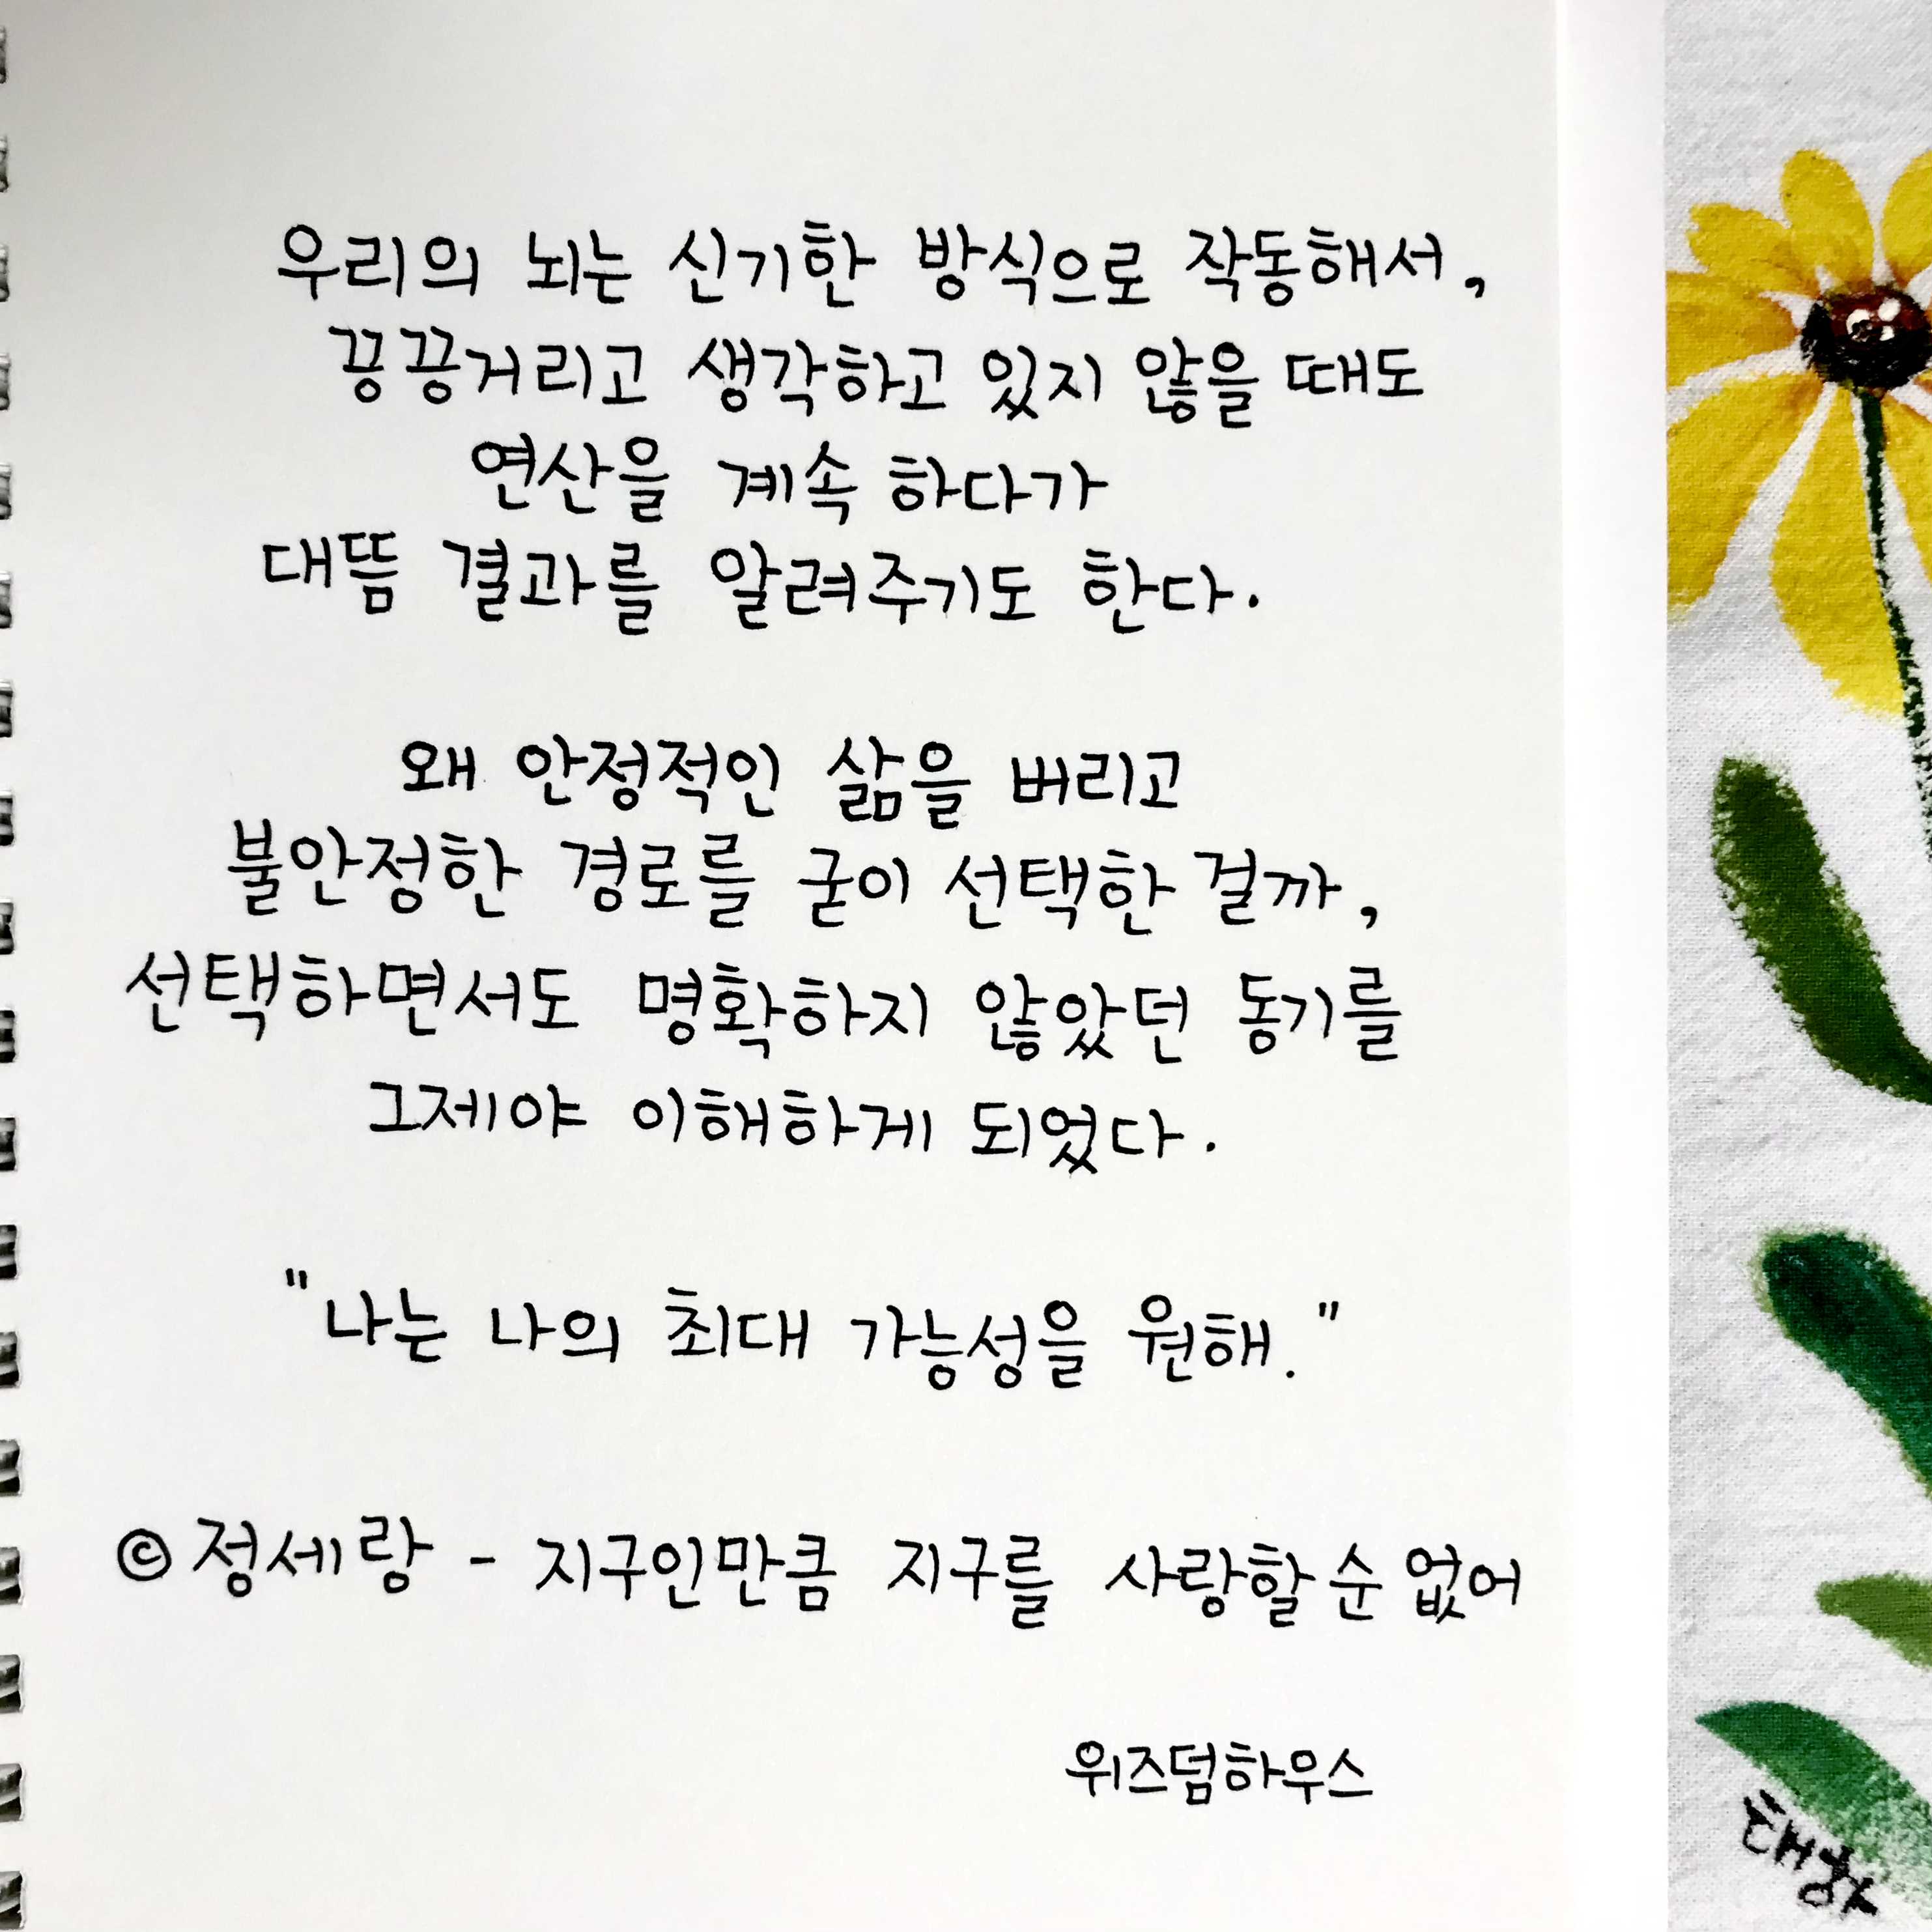 우리의 뇌는 신기한 방식으로 작동해서,
끙끙거리고 생각하고 있지 않을 때도
연산을 계속 하다가
대뜸 결과를 알려주기도 한다.
왜 안정적인 삶을 버리고
불안정한 경로를 굳이 선택한 걸까,
선택하면서도 명확하지 않았던 동기를
그제야 이해하게 되었다.
"나는 나의 최대 가능성을 원해."
© 정세랑 - 지구인만큼 지구를 사랑할 순 없어
위즈덤하우스